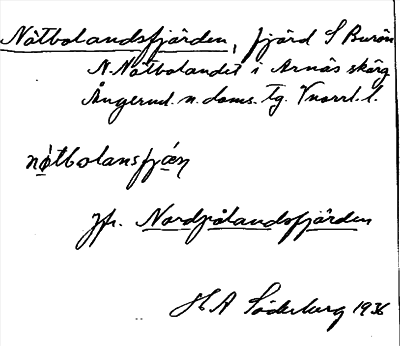 Nötbolandsfjärden, fjärd S Burön
N. Nötbolandet i Arnäs skärg
Ångerml. n. doms. tg. Vnorrl. l.
nø̀tbolansfjæ̀ɳ
Jfr. Nordpålandsfjärden
H A Söderberg 1936